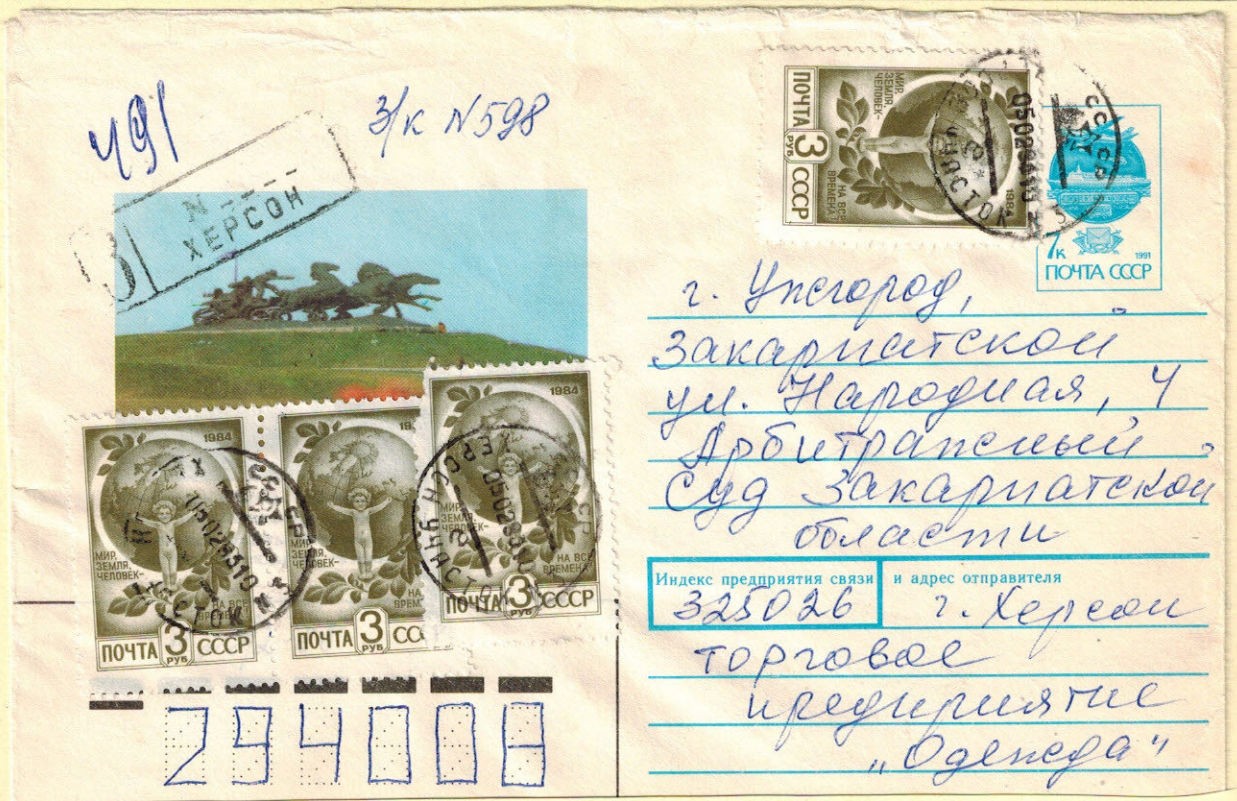 491
З/к N598
З N
ХЕРСОН
МИР,
ЗЕМЛЯ,
ЧЕЛОВЕК-
НА ВСЕ
ВРЕМЕНА!
1984
ПОЧТА 3 РУБ СССР
СССР
0502931
7к
1991
ПОЧТА СССР
г. Ужгород,
Закарпатской
ул. Народная, 4
Арбитражный
Суд Закарпатской
области
Индекс предприятия связи и адрес отправителя
325026 г. Херсон
торговое
предприятие
„Одежда“
1984
МИР,
ЗЕМЛЯ,
ЧЕЛОВЕК-
НА ВСЕ
ПОЧТА 3 РУБ СССР
МИР,
ЗЕМЛЯ,
ЧЕЛОВЕК-
НА
ВРЕМ
ПОЧТА 3 РУБ СС
1984
МИР,
ЗЕМЛЯ,
ЧЕЛОВЕК-
НА ВСЕ
ВРЕМЕНА!
ПОЧТА 3 РУБ СССР
294008